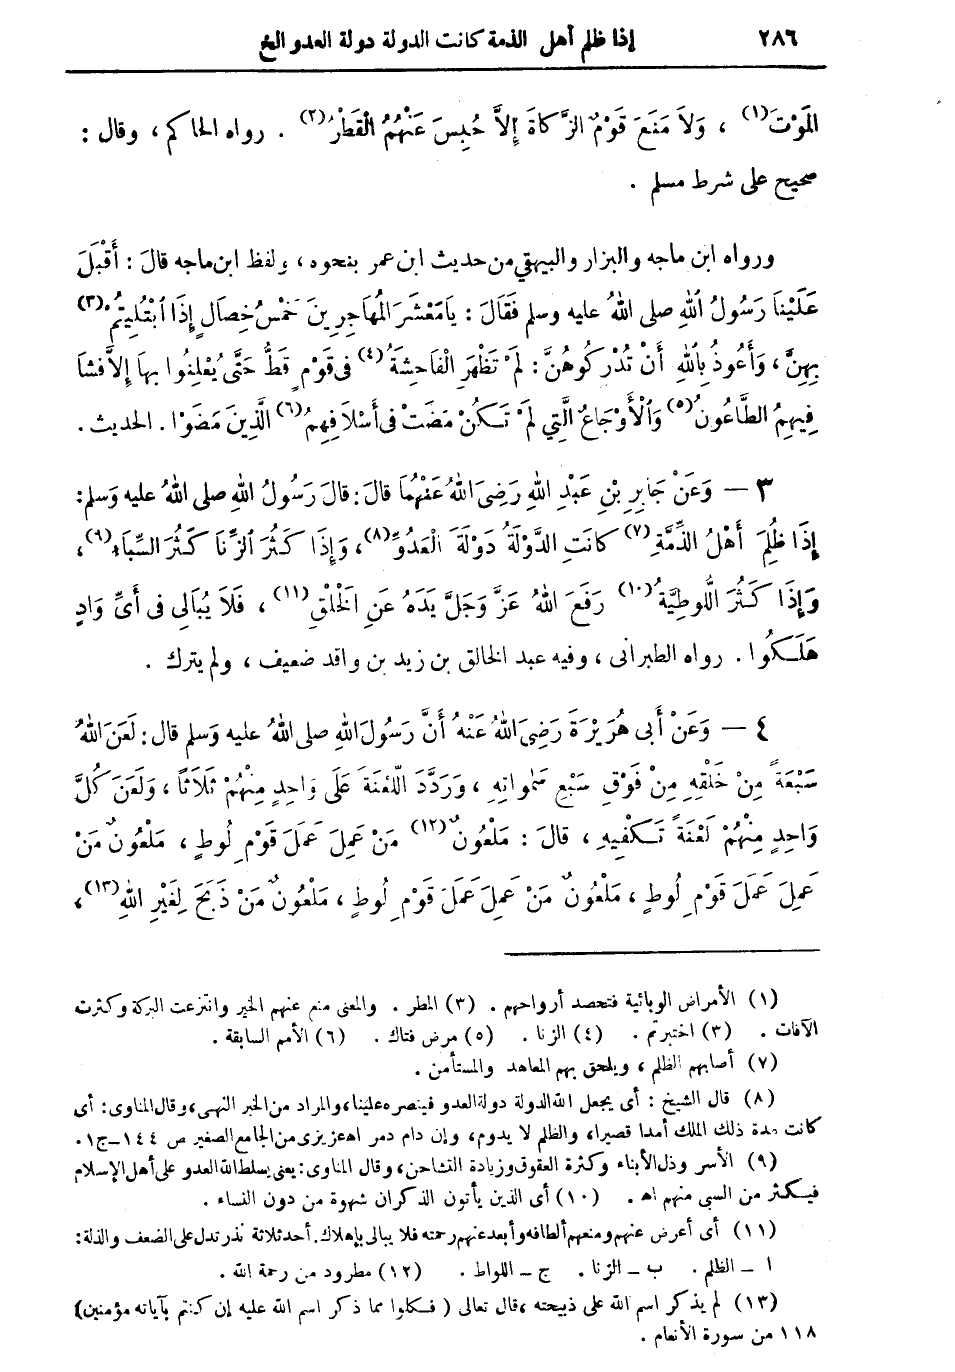 ٢٨٦ إذا ظلم أهل الذمة كانت الدولة دولة العدو الخ
المَوْتَ(١) ، وَلاَ مَنَعَ قَوْمٌ الزَّكَاةَ إِلاَّ حُبِسَ عَنْهُمُ الْقَطْرُ(٢) . رواه الحاكم ، وقال :
صحيح على شرط مسلم .
ورواه ابن ماجه والبزار والبيهقي من حديث ابن عمر بنحوه ، ولفظ ابن ماجه قالَ : أَقْبَلَ
عَلَيْنَا رَسُولُ ٱللهِ صلى اللهُ عليه وسلم فَقَالَ : يَامَعْشَرَ المُهَاجِرِينَ خَمْسُ خِصَالٍ إِذَا ٱبْتُلِيتُمْ(٣)
بِهِنَّ ، وَأَعُوذُ بِٱللهِ أَنْ تُدْرِكُوهُنَّ : لَمْ تَظْهَرِ الْفَاحِشَةُ(٤) فى قَوْمٍ قَطُّ حَتَّى يُعْلِنُوا بِهَا إِلاَّ فَشَا
فِيهِمُ الطَّاعُونُ(٥) وَٱلْأَوْجَاعُ الَّتِي لَمْ تَكُنْ مَضَتْ فى أَسْلاَفِهِمُ(٦) الَّذِينَ مَضَوْا . الحديث .
٣ – وَعَنْ جَابِرِ بْنِ عَبْدِ اللهِ رَضِىَ اللهُ عَنْهُمَا قالَ : قالَ رَسُولُ اللهِ صلى اللهُ عليه وَسلم :
إِذَا ظُلِمَ أَهْلُ الذِّمَّةِ(٧) كانَتِ الدَّوْلَةُ دَوْلَةَ الْعَدُوِّ(٨) ، وَإِذَا كَثُرَ ٱلزِّنَا كَثُرَ السِّبَاءُ(٩) ،
وَإِذَا كَثُرَ اللُّوطِيَّةُ(١٠) رَفَعَ اللهُ عَزَّ وَجَلَّ يَدَهُ عَنِ الْخَلْقِ(١١) ، فَلاَ يُبَالِى فى أَىِّ وَادٍ
هَلَكُوا . رواه الطبرانى ، وفيه عبد الخالق بن زيد بن واقد ضعيف ، ولم يترك .
٤ – وَعَنْ أَبى هُرَيْرَةَ رَضِىَ اللهُ عَنْهُ أَنَّ رَسُولَ اللهِ صلى اللهُ عليه وَسلم قال : لَعَنَ اللهُ
سَبْعَةً مِنْ خَلْقِهِ مِنْ فَوْقِ سَبْعِ سَمٰواتِهِ ، وَرَدَّدَ اللَّعْنَةَ عَلَى وَاحِدٍ مِنْهُمْ ثَلَاثَاً ، وَلَعَنَ كُلَّ
وَاحِدٍ مِنْهُمْ لَعْنَةً تَكْفِيهِ ، قالَ : مَلْعُونٌ(١٢) مَنْ عَمِلَ عَمَلَ قَوْمِ لُوطٍ ، مَلْعُونٌ مَنْ
عَمِلَ عَمَلَ قَوْمِ لُوطٍ ، مَلْعُونٌ مَنْ عَمِلَ عَمَلَ قَوْمِ لُوطٍ ، مَلْعُونٌ مَنْ ذَبَحَ لِغَيْرِ اللهِ(١٣) ،
(١) الأمراض الوبائية فتحصد أرواحهم . (٢) المطر . والمعنى منع عنهم الخير وانتزعت البركة وكثرت
الآفات . (٣) اختبرتم . (٤) الزنا . (٥) مرض فتاك . (٦) الأمم السابقة .
(٧) أصابهم الظلم ، ويلحق بهم المعاهد والمستأمن .
(٨) قال الشيخ : أى يجعل الله الدولة دولة العدو فينصره علينا ، والمراد من الخبر النهى ، وقال المناوى : أى
كانت مدة ذلك الملك أمدا قصيرا ، والظلم لا يدوم ، وإن دام دمر اهعزيزى من الجامع الصغير ص ١٤٤ – ج١ .
(٩) الأسر وذل الأبناء وكثرة العقوق وزيادة التشاحن ، وقال المناوى : يعنى يسلط الله العدو على أهل الإسلام
فيكثر من السبى منهم اه . (١٠) أى الذين يأتون الذكران شهوة من دون النساء .
(١١) أى أعرض عنهم ومنعهم ألطافه وأبعد عنهم رحمته فلا يبالى بإهلاك. أحد ثلاثة نذر تدل على الضعف والذلة :
ا – الظلم . ب – الزنا . ج – اللواط . (١٢) مطرود من رحمة الله .
(١٣) لم يذكر اسم الله على ذبيحته ، قال تعالى ( فكلوا مما ذكر اسم الله عليه إن كنتم بآياته مؤمنين )
١١٨ من سورة الأنعام .